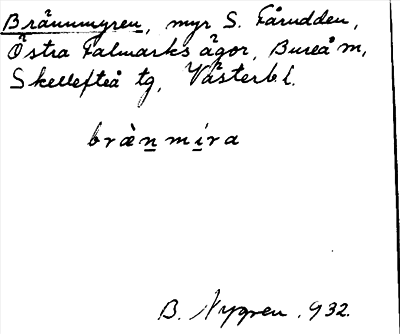 Brännmyren, myr S. Fårudden,
Östra Falmarks ägor, Bureå m,
Skellefteå tg, Västerb. l.
bræ̀n míra
B. Nygren. 932.